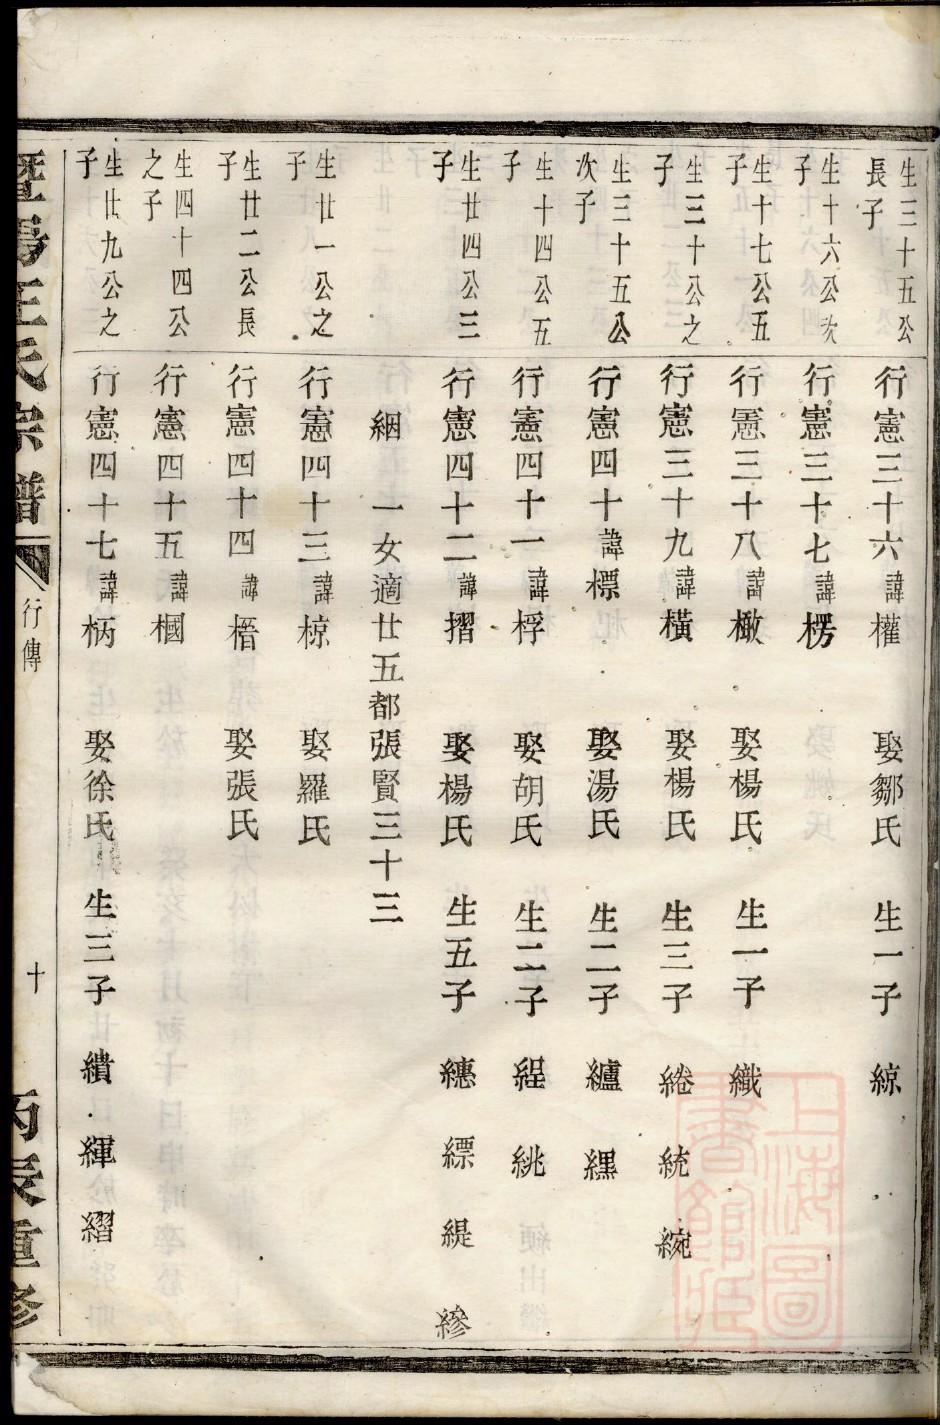 生三十五公長子
行憲三十六諱權 娶鄒氏 生一子 綡
生十六公次子
行憲三十七諱楞
生十七公五子
行憲三十八諱橄 娶楊氏 生一子 織
生三十公之子
行憲三十九諱橫 娶楊氏 生三子 綣 統 綩
生三十五公次子
行憲四十諱標 娶湯氏 生二子 纑 縲
生十四公五子
行憲四十一諱桴 娶胡氏 生二子 緸 絩
生廿四公三子
行憲四十二諱摺 娶楊氏 生五子 繐 縹 緹 縿
絪 一女適廿五都張賢三十三
生廿一公之子
行憲四十三諱椋 娶羅氏
生廿二公長子
行憲四十四諱榗 娶張氏
生四十四公之子
行憲四十五諱槶
生廿九公之子
行憲四十七諱柄 娶徐氏 生三子 繢 緷 縎
暨陽王氏宗譜
行傳
十
丙辰重修
上海圖書館藏